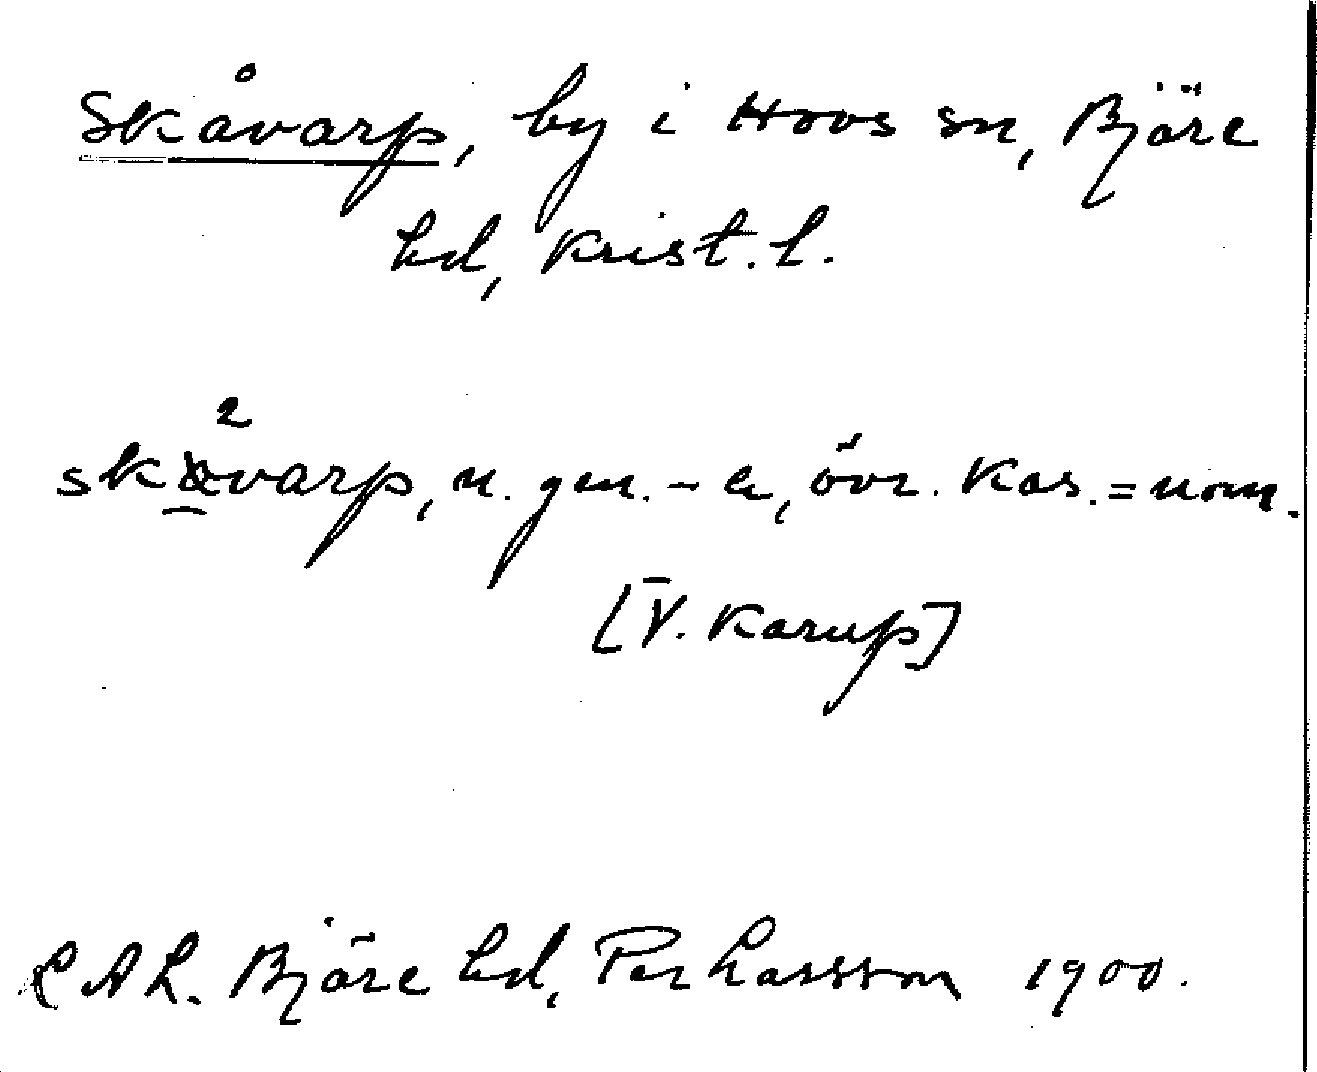 Skåvarp, by i Hovs sn, Bjäre
hd, Krist. l.
skåvarp, n. gen. - a, övr. kas. = nom.
[V. Karup]
LAL. Bjäre hd, Per Larsson 1900.